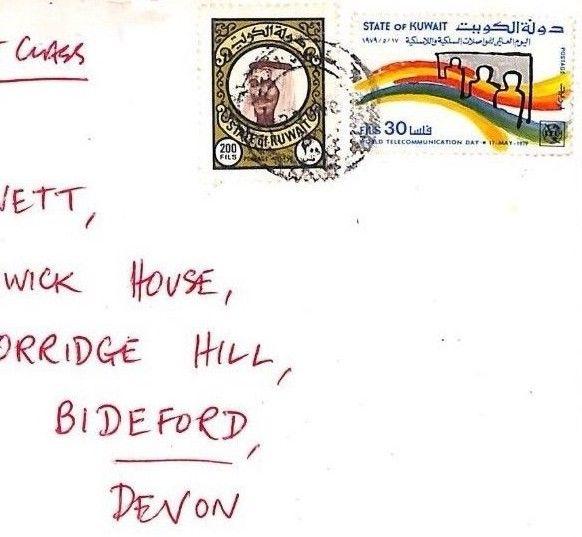 CLASS
دولة الكويت
STATE OF KUWAIT
200
FILS
٢٠٠
فلس
STATE OF KUWAIT دولة الكويت
١٩٧٩/٥/١٧ اليوم العالمي للمواصلات السلكية واللاسلكية
POSTAGE
FILS 30 فلسا
WORLD TELECOMMUNICATION DAY • 17-MAY-1979
VETT,
WICK HOUSE,
ORRIDGE HILL,
BIDEFORD,
DEVON